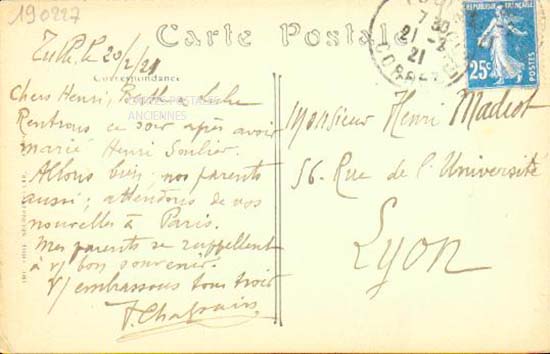 190227
Carte Postale
Correspondance
Tulle 20/2/21
Chers Henri,
Rentrons ce soir après avoir
marié Henri Soulier.
Allons bien, nos parents
aussi; attendons de vos
nouvelles à Paris.
Mes parents se rappellent
à v/ bon souvenir.
V/ embrassons tous trois
CARTES POSTALES
ANCIENNES
Monsieur Henri
56. Rue de l'Université
Lyon
7 30
21 - 2
21
CORRÈZE
RÉPUBLIQUE FRANÇAISE
25c
POSTES